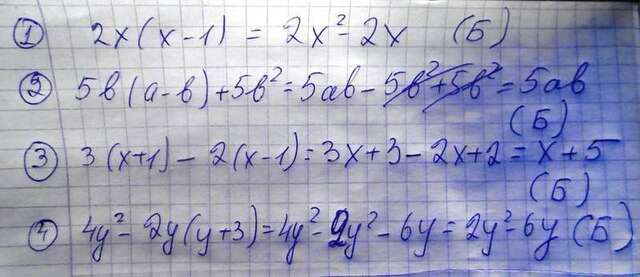 ① 2x(x-1) = 2x²-2x (Б)
② 5в(а-в)+5в²=5ав-5в²+5в²=5ав
(Б)
③ 3(x+1)-2(x-1)=3x+3-2x+2=x+5
(Б)
④ 4y²-2y(y+3)=4y²-2y²-6y=2y²-6y (Б)